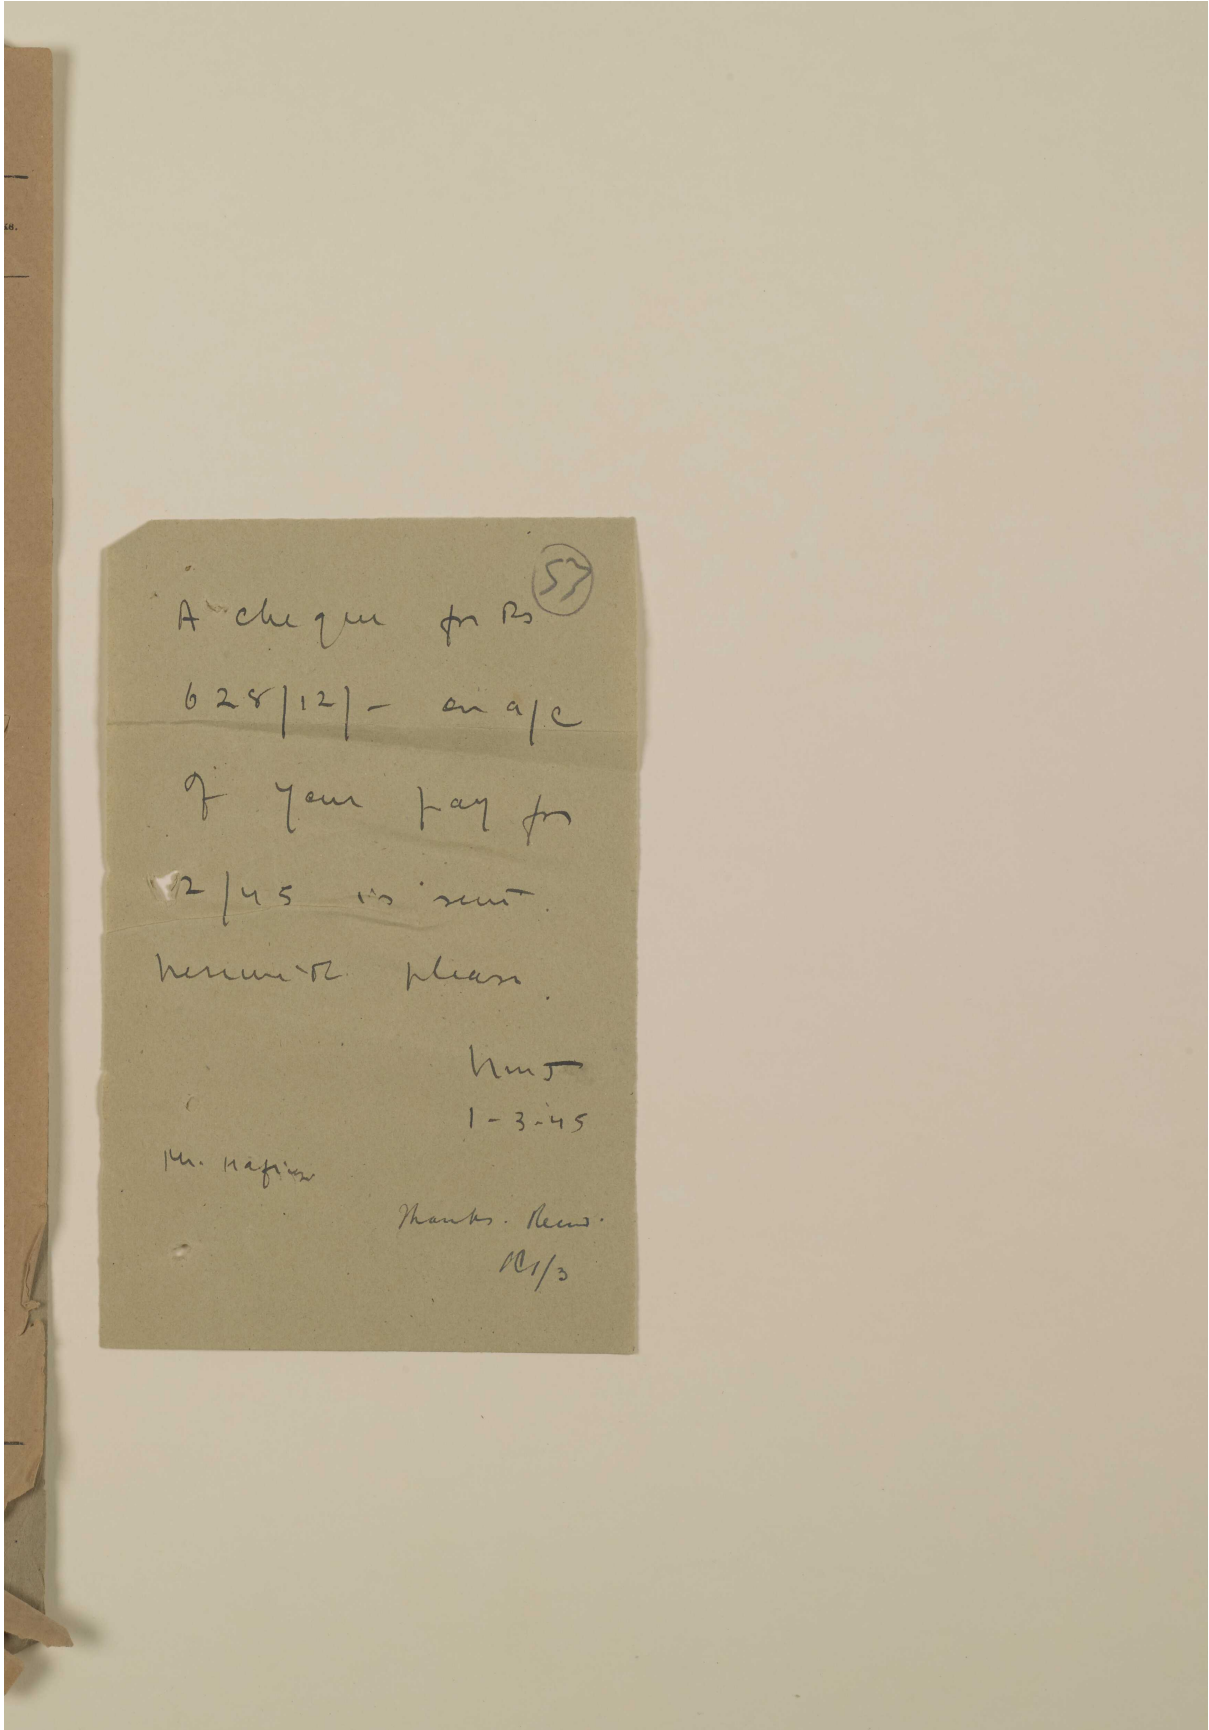 57
A cheque for Rs
628/12/- on a/c
of your pay for
2/45 is sent
herewith please.
1-3-45
Mr. Hafiz
Thanks. Recd.
1/3